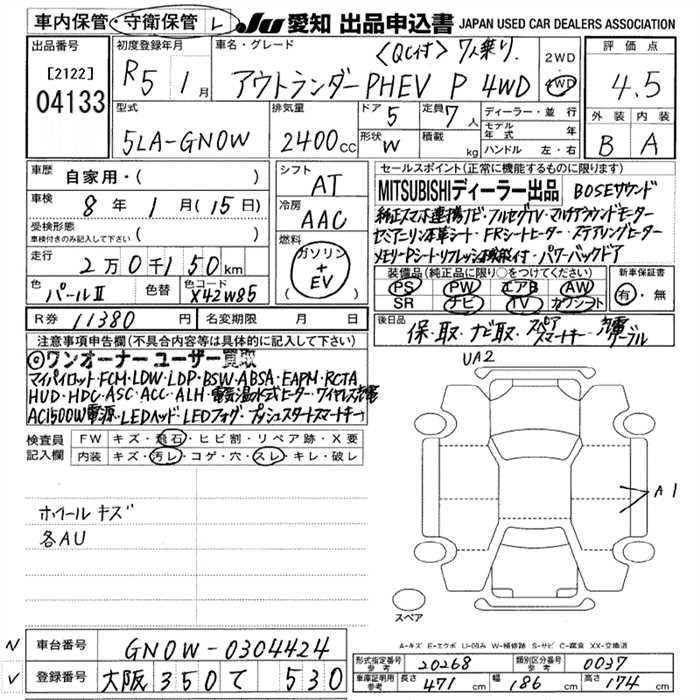 車内保管・守衛保管 L
JU 愛知 出品申込書 JAPAN USED CAR DEALERS ASSOCIATION
出品番号
[2122]
04133
初度登録年月
R5 1月
車名・グレード
〈QC付〉 7人乗り
アウトランダーPHEV P 4WD
2WD
4WD
評価点
4.5
型式
5LA-GN0W
排気量
2400cc
ドア 5
形状 W
定員 7人
積載 kg
ディーラー・並行
モデル年式 年
ハンドル 左・右
外装 内装
B A
車歴 自家用・( )
車検 8年 1月(15日)
受検形態
車検付きのみ記入して下さい ( )
走行 2万0千150km
色 パールⅡ
色替
色コード X42W85
シフト
AT
冷房
AAC
燃料
ガソリン
+
EV
セールスポイント(正常に機能するものに限ります)
MITSUBISHIディーラー出品 BOSEサウンド
純正スマホ連携ナビ・フルセグTV・マルチアラウンドモニター
セミアニリン本革シート・FRシートヒーター・ステアリングヒーター
メモリーPシートリフレッシュ機能付・パワーバックドア
装備品(純正品に限り○をつけてください)
PS PW エアB AW
SR ナビ TV カワシート
新車保証書
有・無
R券 11380円
名変期限 月 日
後日品
保・取・ナビ取・スペアスマートキー・充電ケーブル
注意事項申告欄(不具合内容等は具体的に記入して下さい)
◎ワンオーナーユーザー買取
マイパイロット・FCM・LDW・LDP・BSW・ABSA・EAPM・RCTA
HUD・HDC・ASC・ACC・ALH・電気温水式ヒーター・ワイヤレス充電
AC1500W電源・LEDヘッド・LEDフォグ・プッシュスタートスマートキー
検査員
記入欄
FW キズ・飛石・ヒビ割・リペア跡・X要
内装 キズ・汚レ・コゲ・穴・スレ・キレ・破レ
UA2
ホイールキズ
各AU
A1
スペア
A-キズ E-エクボ U-凹み W-補修跡 S-サビ C-腐食 XX-交換済
N 車台番号 GN0W-0304424
V 登録番号 大阪 350 て 530
形式指定番号 参考 20268
類別区分番号 参考 0037
車庫証明用 参考 長さ 471 cm 幅 186 cm 高さ 174 cm